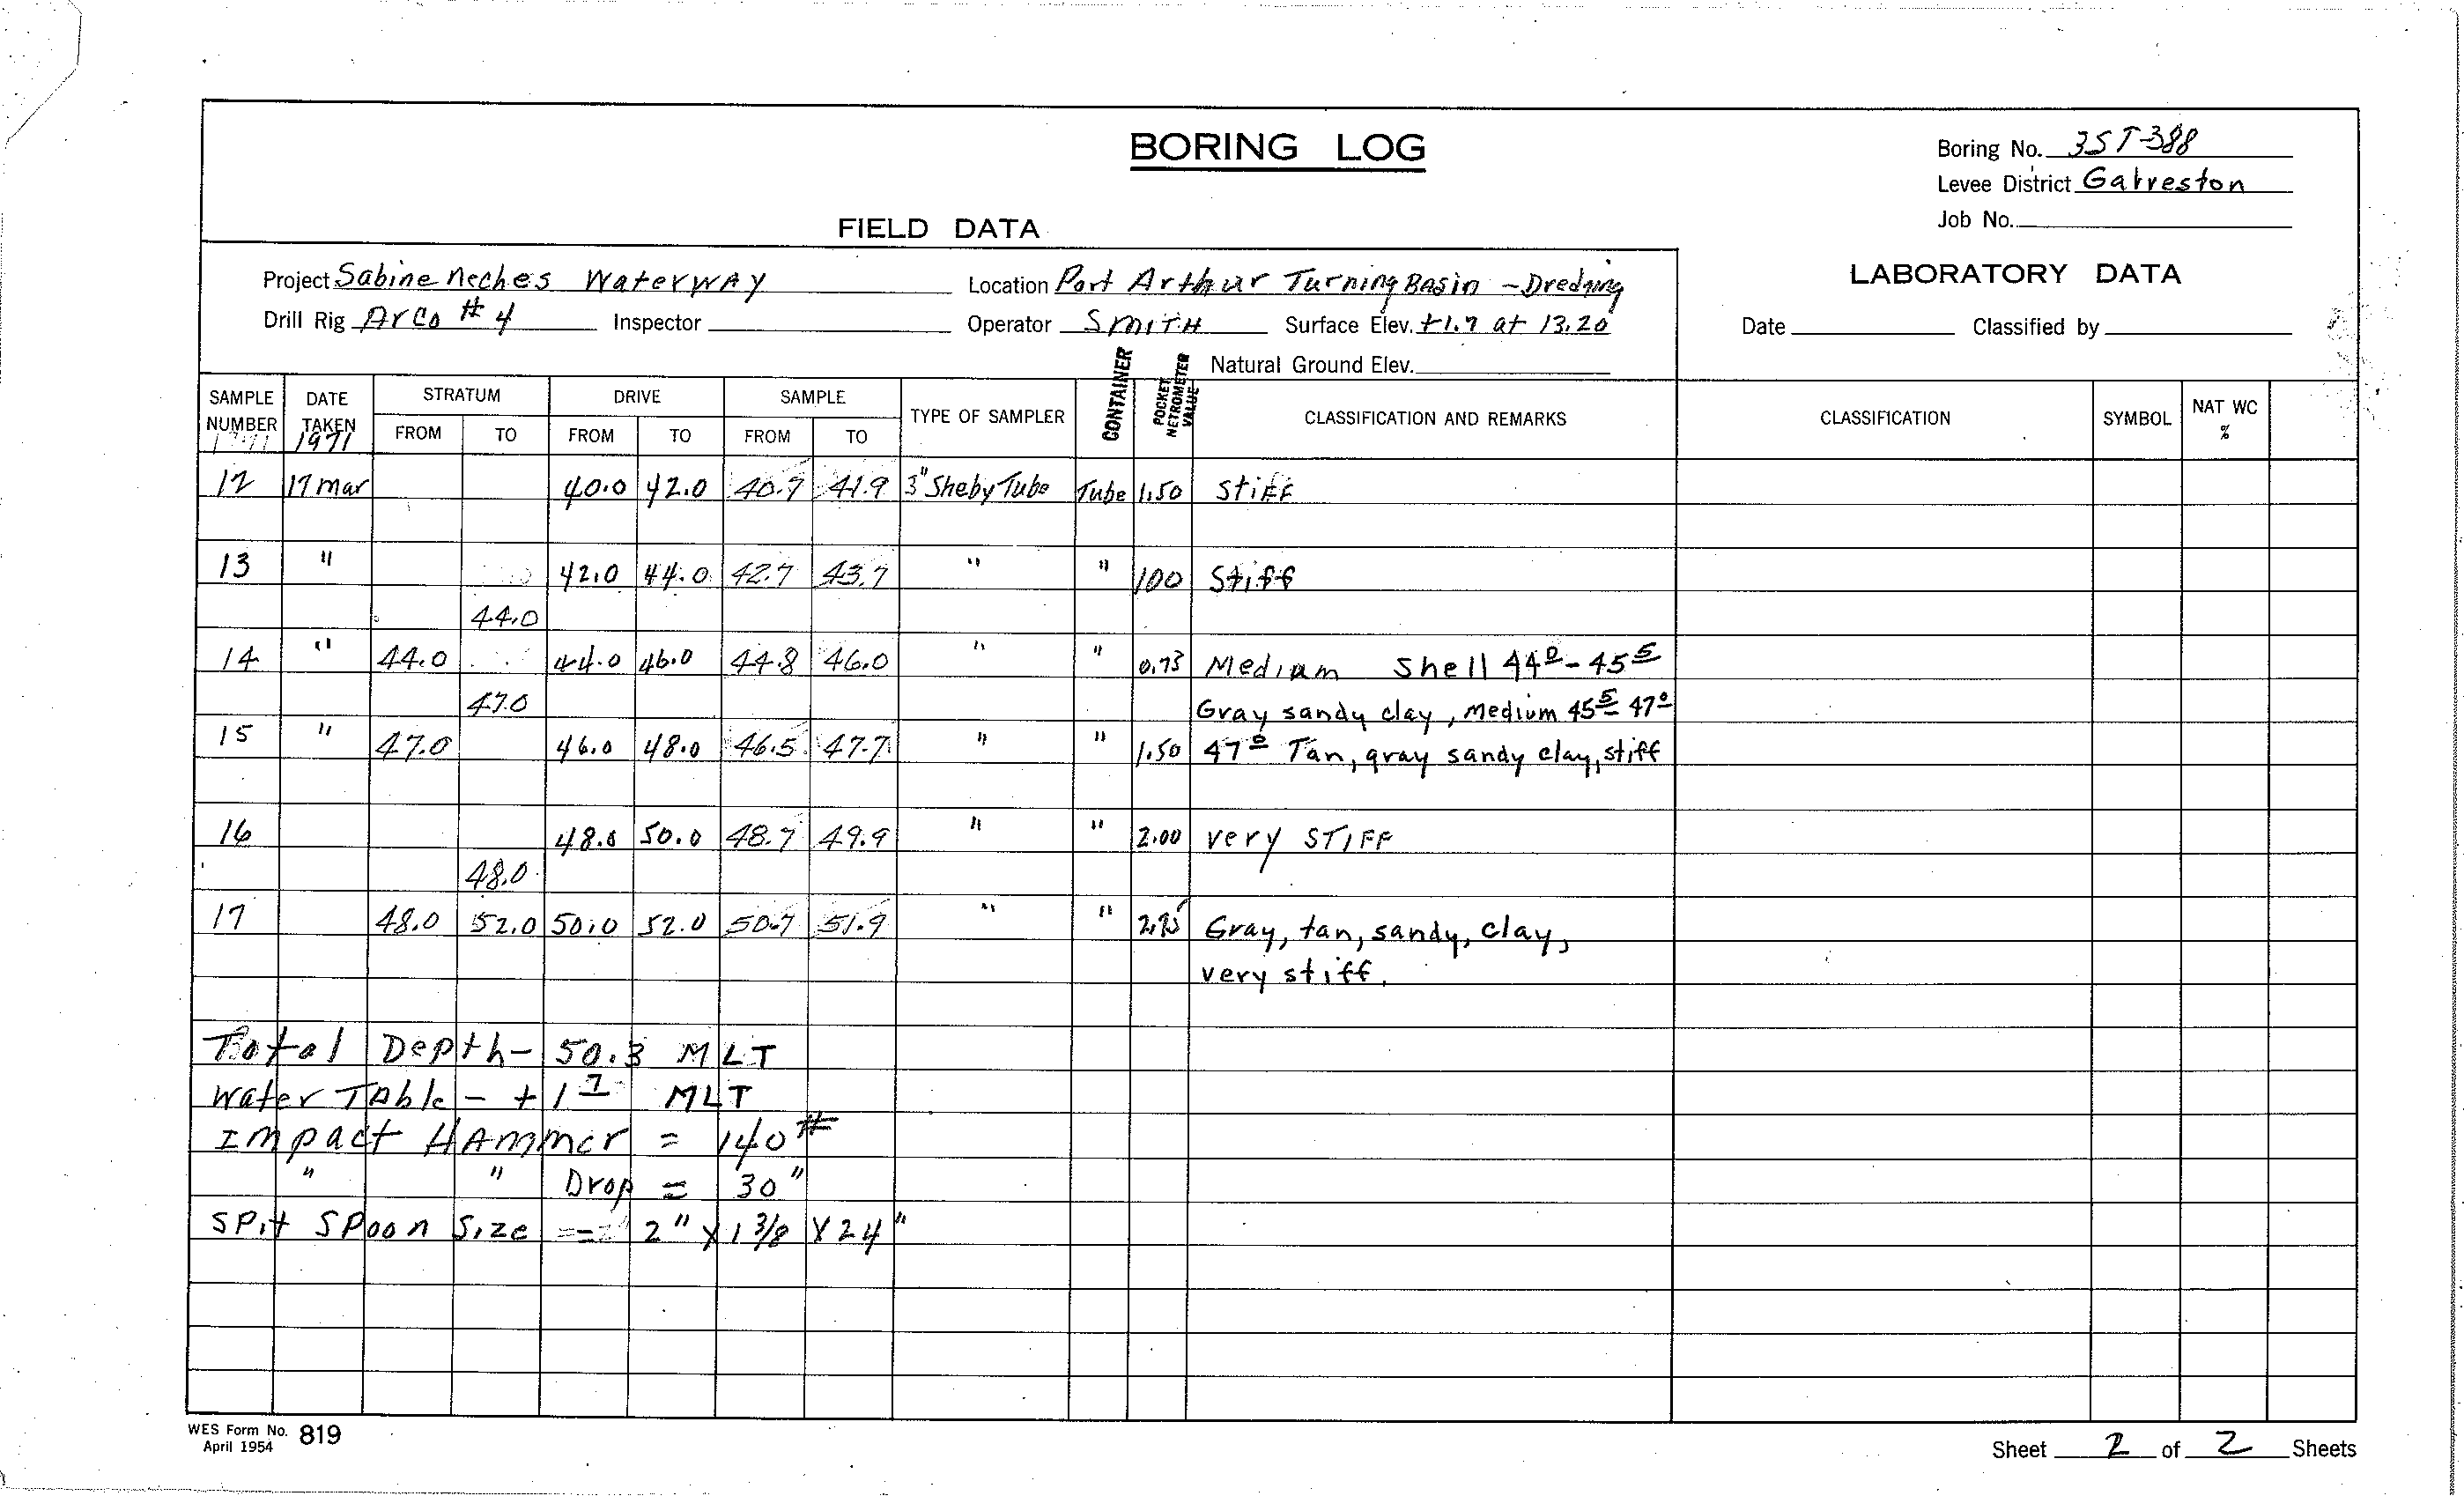 BORING LOG
Boring No. 3ST-388
Levee District Galveston
Job No.
FIELD DATA
LABORATORY DATA
Project Sabine neches WaterWAY Location Port Arthur Turning Basin - Dredging
Drill Rig ArCo # 4 Inspector Operator SMITH Surface Elev. +1.7 at 13.20 Date Classified by
Natural Ground Elev.
SAMPLE NUMBER DATE TAKEN STRATUM DRIVE SAMPLE TYPE OF SAMPLER CONTAINER POCKET NETROMETER VALUE CLASSIFICATION AND REMARKS CLASSIFICATION SYMBOL NAT WC %
1971 FROM TO FROM TO FROM TO
12 17 mar 40.0 42.0 40.7 41.9 3" Sheby Tube Tube 1.50 Stiff
13 " 42.0 44.0 42.7 43.7 " " 100 Stiff
44.0
14 " 44.0 44.0 46.0 44.8 46.0 " " 0.73 Medium Shell 44 0 - 45 5
47.0 Gray sandy clay, Medium 45 5 47 0
15 " 47.0 46.0 48.0 46.5 47.7 " " 1.50 47 0 Tan, gray sandy clay, stiff
16 48.0 50.0 48.7 49.9 " " 2.00 very STIFF
48.0
17 48.0 52.0 50.0 52.0 50.7 51.9 " " Gray, tan, sandy, clay,
very stiff.
Total Depth - 50.3 MLT
Water TAble - + 1 7 MLT
Impact HAmmer = 140#
" " Drop = 30"
SPit SPoon Size = 2" X 1 3/8 X 24"
WES Form No. 819
April 1954
Sheet 2 of 2 Sheets